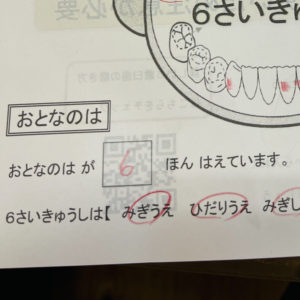 6さいきゅう
おとなのは
おとなのは が 6 ほん はえています。
6さいきゅうしは【 みぎうえ ひだりうえ みぎし